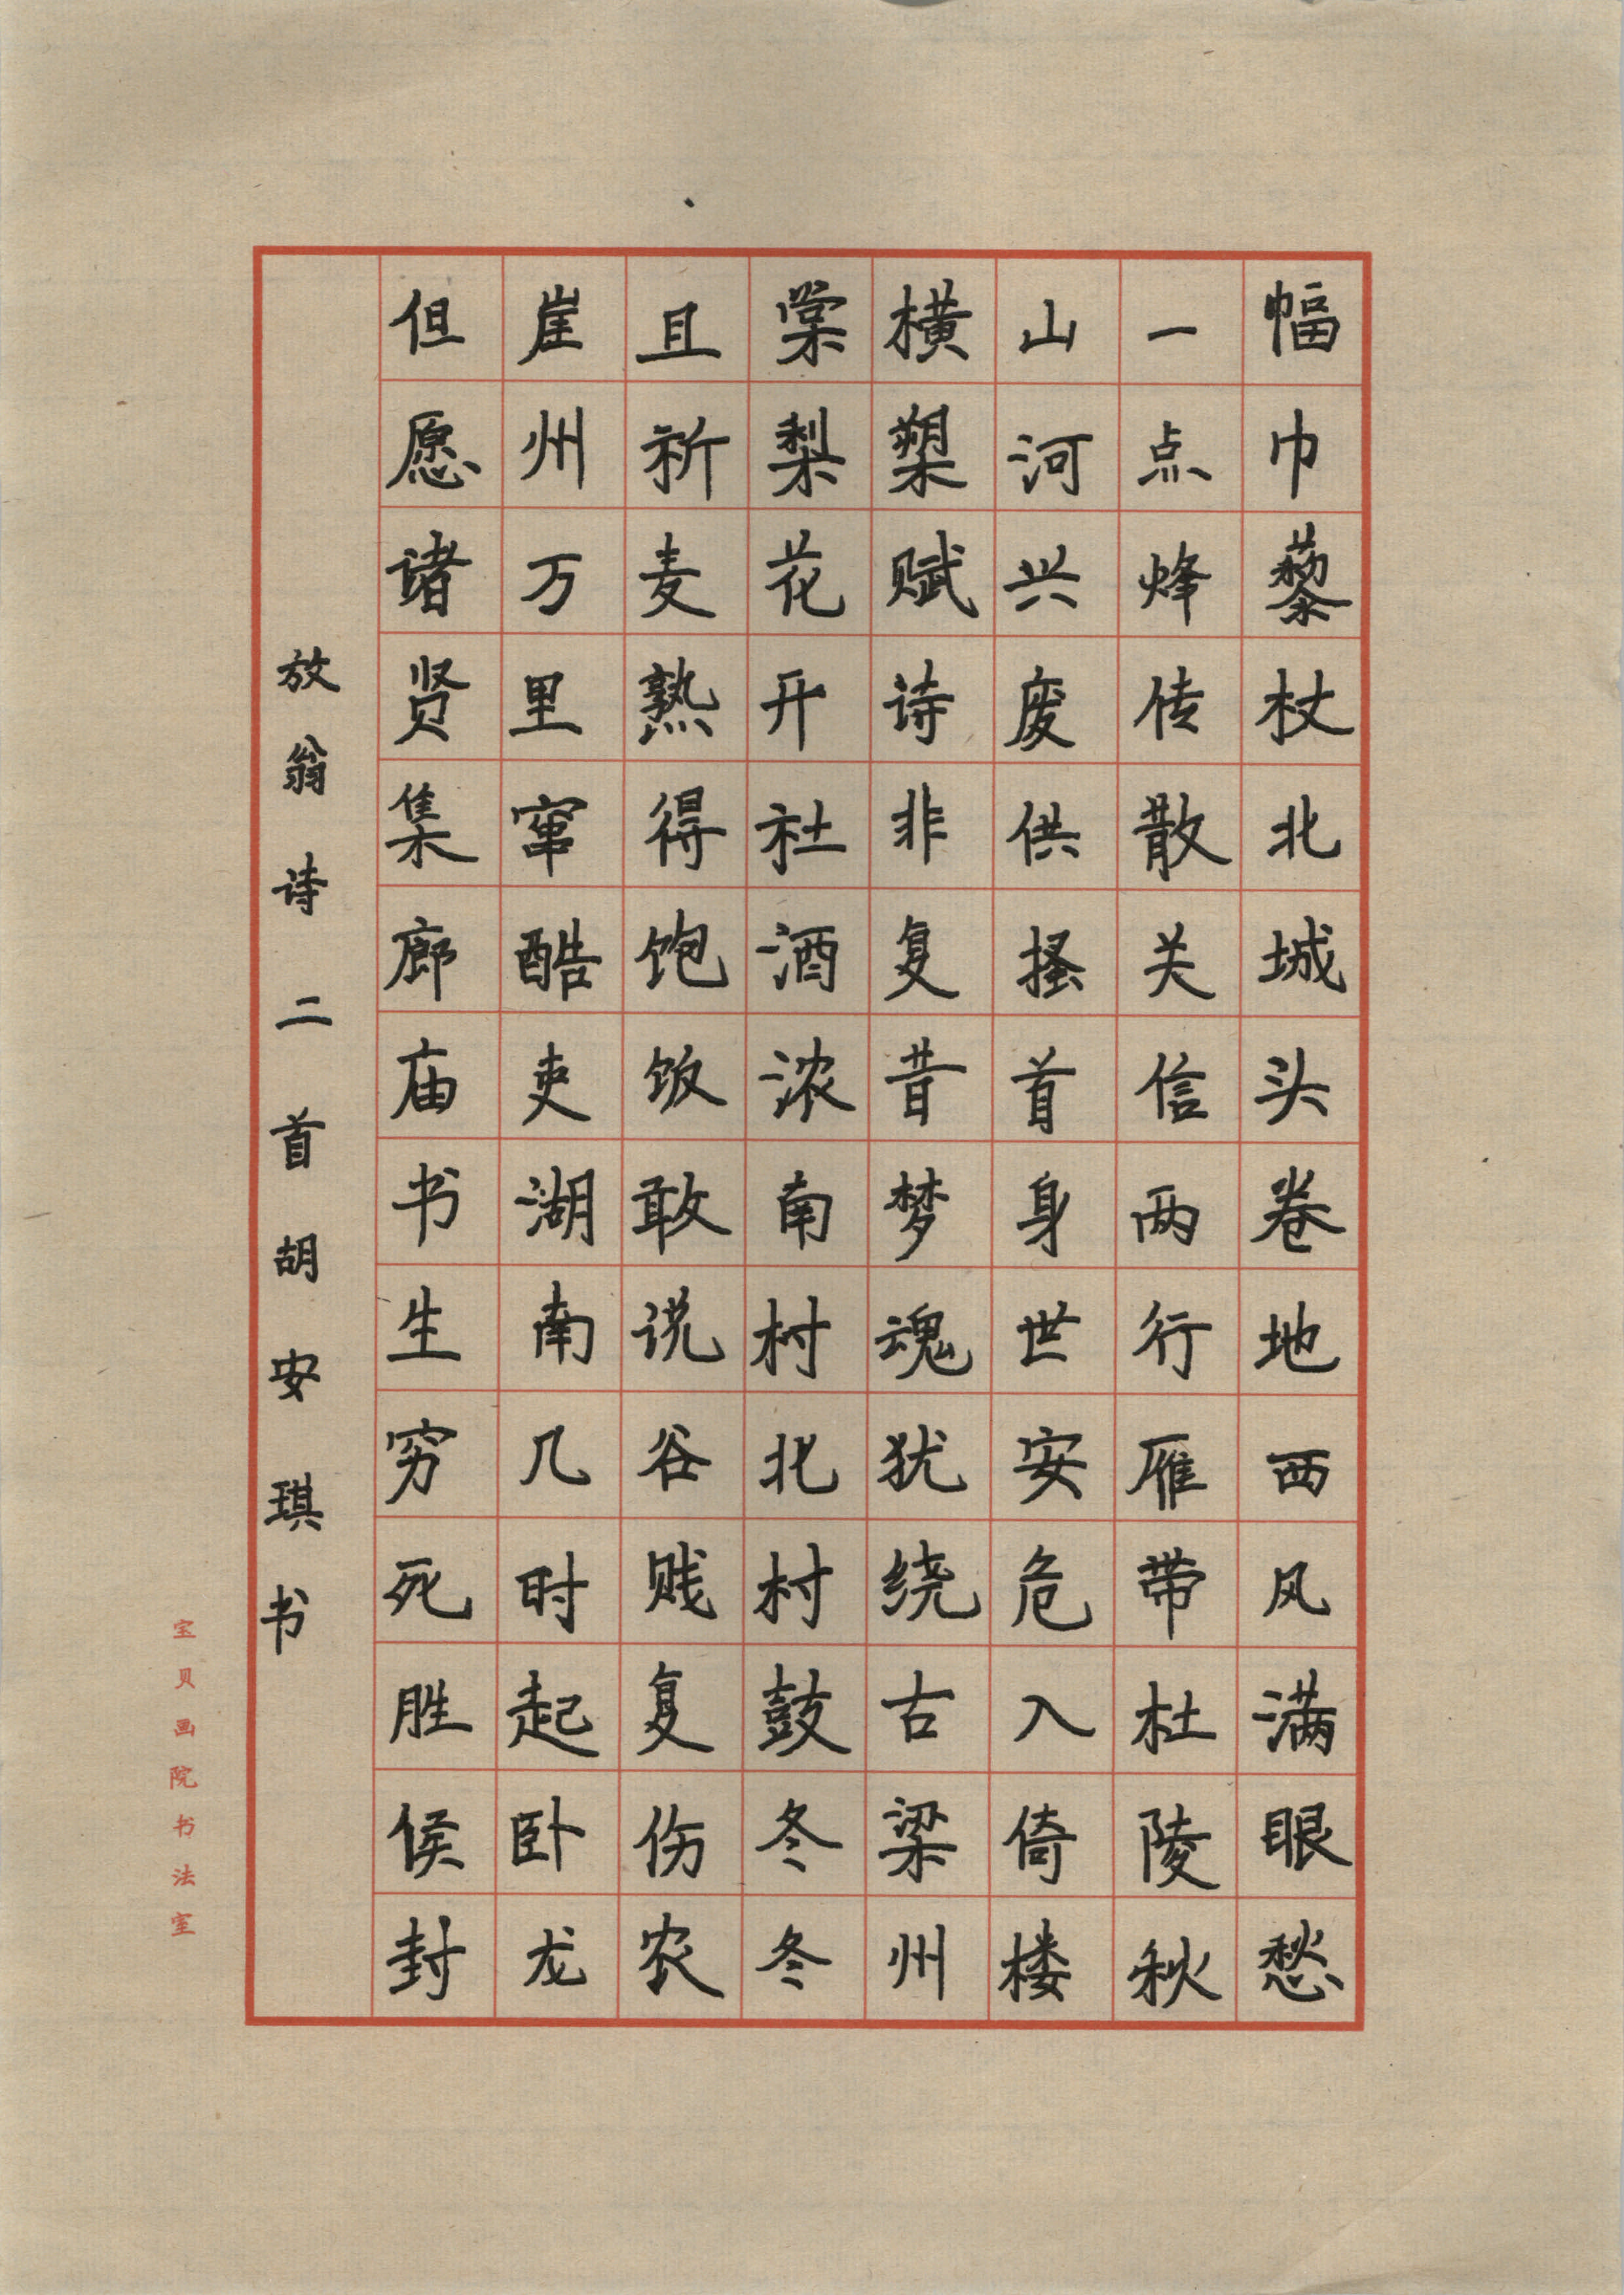 幅巾藜杖北城头卷地西风满眼愁
一点烽传散关信两行雁带杜陵秋
山河兴废供搔首身世安危入倚楼
横槊赋诗非复昔梦魂犹绕古梁州
棠梨花开社酒浓南村北村鼓冬冬
且祈麦熟得饱饭敢说谷贱复伤农
崖州万里窜酷吏湖南几时起卧龙
但愿诸贤集廊庙书生穷死胜侯封
放翁诗二首胡安琪书
宝贝画院书法室